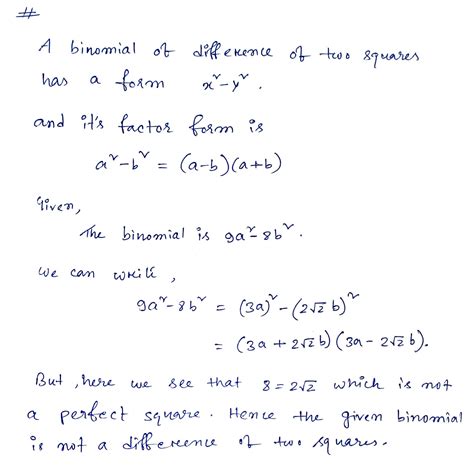 #
A binomial of difference of two squares
has a form x²-y².
and it's factor form is
a²-b² = (a-b)(a+b)
Given,
The binomial is 9a²-8b².
we can write,
9a²-8b² = (3a)²-(2√2 b)²
= (3a + 2√2 b) (3a - 2√2 b).
But, here we see that 8 = 2√2 which is not
a perfect square. Hence the given binomial
is not a difference of two squares.